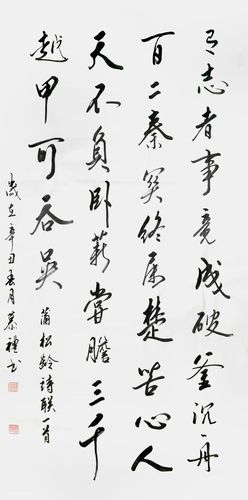 有志者事竟成破釜沉舟
百二秦关终属楚苦心人
天不負卧薪嘗膽三千
越甲可吞吳 蒲松齡詩联一首
歲在辛丑春月 書